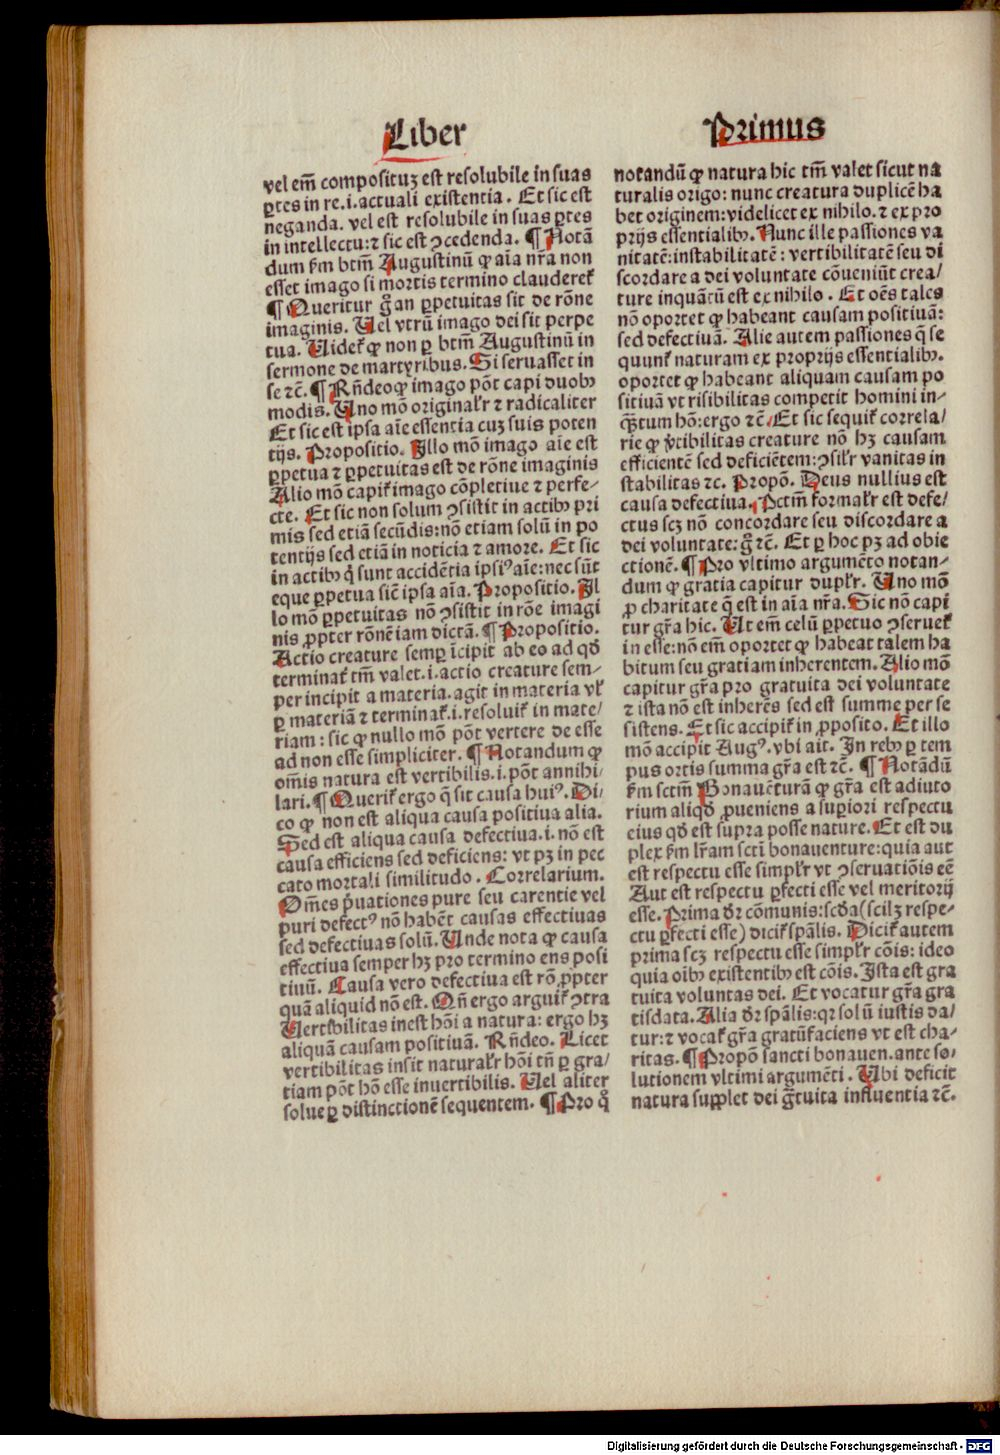 Liber
Primus
vel em̃ composituȝ est resolubile in suas
ꝑtes in re.i.actuali existentia. Et sic est
neganda. vel est resolubile in suas ꝑtes
in intellectu:⁊ sic est ꝯcedenda. ¶ Notã
dum ẜm btm̃ Augustinũ ꝙ aĩa nr̃a non
esset imago si mortis termino claudereť
¶ Queritur g̊ an ꝑpetuitas sit de rõne
imaginis. Uel vtrũ imago dei sit perpe
tua. Uideť ꝙ non ꝑ btm̃ Augustinũ in
sermone de martyribus. Si seruasset in
se ⁊c̃. ¶ Rñdeo ꝙ imago põt capi duobꝫ
modis. Uno mõ originaľr ⁊ radicaliter
Et sic est ipsa aĩe essentia cuȝ suis poten
tijs. Propositio. Illo mõ imago aĩe est
ꝑpetua ⁊ ꝑpetuitas est de rõne imaginis
Alio mõ capiť imago cõpletiue ⁊ perfe-
cte. Et sic non solum ꝯsistit in actibꝫ pri
mis sed etiã secũdis: nõ etiam solũ in po
tentijs sed etiã in noticia ⁊ amore. Et sic
in actibꝫ q̃ sunt accidẽtia ipsiꝰ aĩe: nec sũt
eque ꝑpetua siĉ ipsa aĩa. Propositio. Il
lo mõ ꝑpetuitas nõ ꝯsistit in rõe imagi
nis ꝓpter rõnẽ iam dictã. ¶ Propositio.
Actio creature semꝑ ĩcipit ab eo ad qd̃
terminať tm̃ valet.i.actio creature sem-
per incipit a materia.agit in materia vľ
ꝑ materiã ⁊ terminať.i.resoluiť in mate/
riam: sic ꝙ nullo mõ põt vertere de esse
ad non esse simpliciter. ¶ Notandum ꝙ
om̃is natura est vertibilis.i.põt annihi/
lari. ¶ Queriť ergo q̃ sit causa huiꝰ. Di/
co ꝙ non est aliqua causa positiua alia.
Sed est aliqua causa defectiua.i.nõ est
causa efficiens sed deficiens: vt pȝ in pec
cato mortali similitudo. Correlarium.
Om̃es p̃uationes pure seu carentie vel
puri defectꝰ nõ habẽt causas effectiuas
sed defectiuas solũ. Unde nota ꝙ causa
effectiua semper hȝ pro termino ens posi
tiuũ. Causa vero defectiua est rõ ꝓpter
quã aliquid nõ est. Qñ ergo arguiť ꝯtra
Uertibilitas inest hõi a natura: ergo hȝ
aliquã causam positiuã. Rñdeo. Licet
vertibilitas insit naturaľr hõi tñ ꝑ gra/
tiam põt hõ esse inuertibilis. Uel aliter
solue ꝑ distinctionẽ sequentem. ¶ Pro q̊
notandũ ꝙ natura hic tm̃ valet sicut na
turalis origo: nunc creatura duplicẽ ha
bet originem: videlicet ex nihilo. ⁊ ex pro
prijs essentialibꝫ. Nunc ille passiones va
nitatẽ: instabilitatẽ: vertibilitatẽ seu di
scordare a dei voluntate cõueniũt crea/
ture inquãtũ est ex nihilo. Et oẽs tales
nõ oportet ꝙ habeant causam positiuã:
sed defectiuã. Alie autem passiones q̃ se
quunť naturam ex proprijs essentialibꝫ.
oportet ꝙ habeant aliquam causam po
sitiuã vt risibilitas competit homini in-
q̃tum hõ: ergo ⁊c̃. Et sic sequiť correla/
rie ꝙ v̾tibilitas creature nõ hȝ causam
efficientẽ sed deficiẽtem: ꝯsiľr vanitas in
stabilitas ⁊c. Propõ. Deus nullius est
causa defectiua. Pctm̃ formaľr est defe/
ctus scȝ nõ concordare seu discordare a
dei voluntate: g̊ ⁊c̃. Et ꝑ hoc pȝ ad obie
ctionẽ. ¶ Pro vltimo argumẽto notan-
dum ꝙ gratia capitur dupľr. Uno mõ
ꝓ charitate q̃ est in aĩa nr̃a. Sic nõ capi
tur gr̃a hic. Ut em̃ celũ perpetuo ꝯserueť
in esse: nõ em̃ oportet ꝙ habeat talem ha
bitum seu gratiam inherentem. Alio mõ
capitur gr̃a pro gratuita dei voluntate
⁊ ista nõ est inherẽs sed est summe per se
sistens. Et sic accipiť in ꝓposito. Et illo
mõ accipit Augꝰ. vbi ait. In rebꝫ ꝑ tem
pus ortis summa gr̃a est ⁊c̃. ¶ Notãdũ
ẜm sctm̃ Bonauẽturã ꝙ gr̃a est adiuto
rium aliqd̃ ꝓueniens a suꝑiori respectu
eius qd̃ est supra posse nature. Et est du
plex ẜm lr̃am sctĩ bonauenture: quia aut
est respectu esse simpľr vt ꝯseruatiõis eẽ
Aut est respectu ꝑfecti esse vel meritorij
esse. Prima dr̃ cõmunis: scd̃a (scilȝ respe-
ctu ꝑfecti esse) diciť sp̃alis. Diciť autem
prima scȝ respectu esse simpľr cõis: ideo
quia oĩbꝫ existentibꝫ est cõis. Ista est gra
tuita voluntas dei. Et vocatur gr̃a gra
tisdata. Alia dr̃ sp̃alis: qꝛ solũ iustis da/
tur: ⁊ vocať gr̃a gratũfaciens vt est cha-
ritas. ¶ Propõ sancti bonauen. ante so/
lutionem vltimi argumẽti. Ubi deficit
natura supplet dei g̃tuita influentia ⁊c̃.
Digitalisierung gefördert durch die Deutsche Forschungsgemeinschaft - DFG